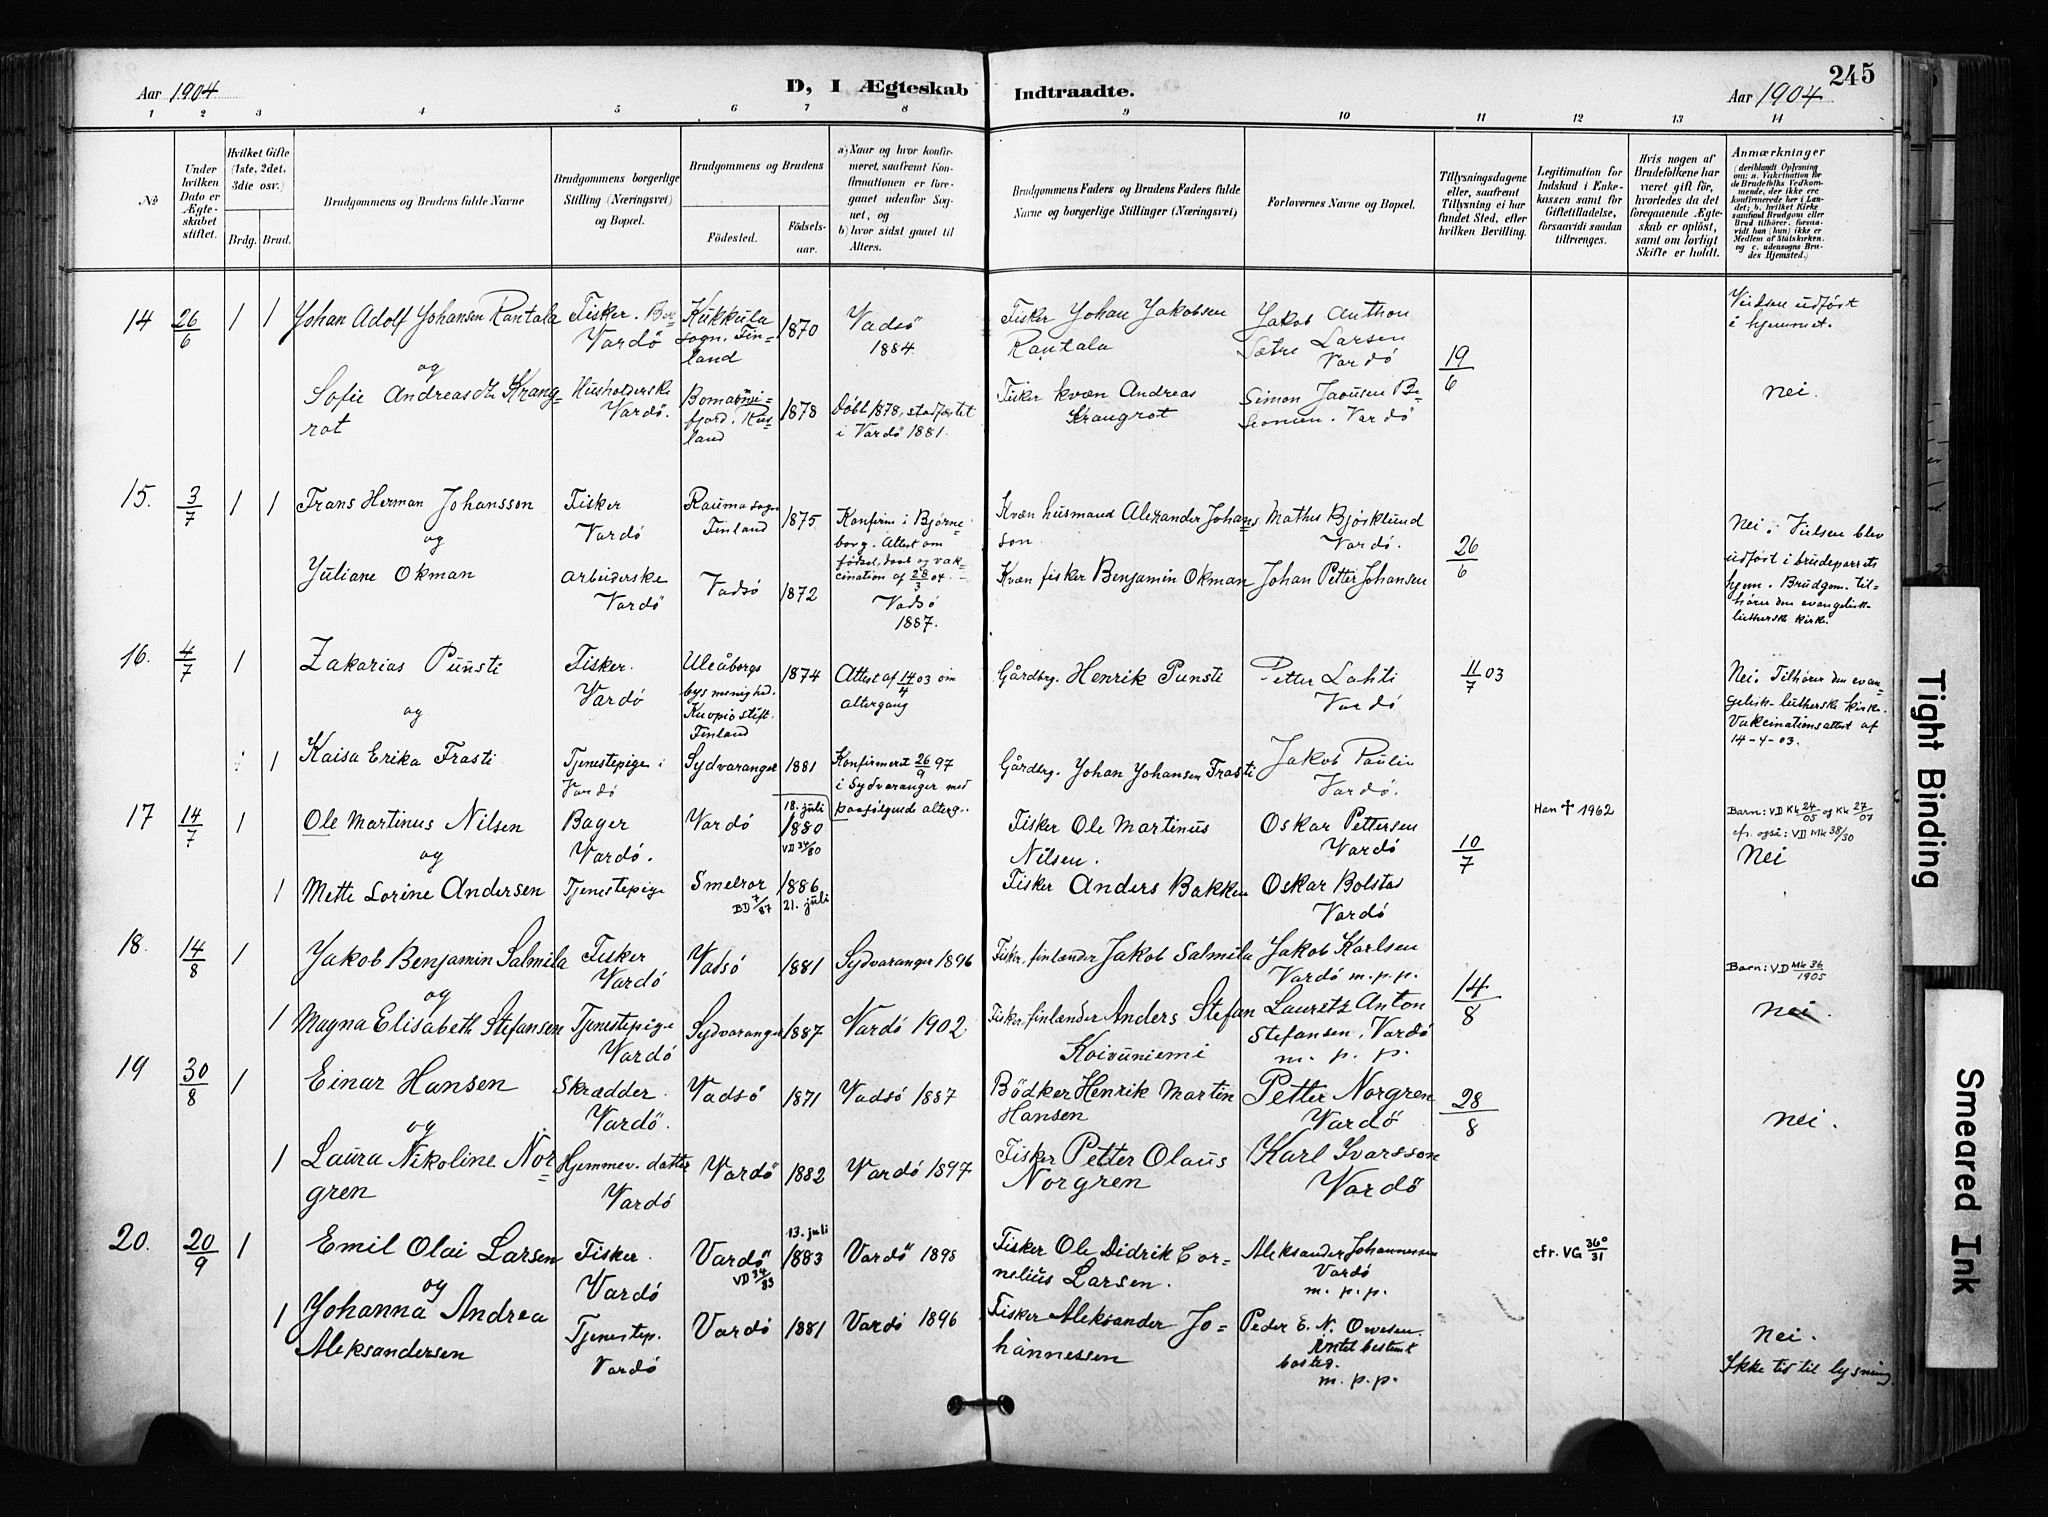 Aar 1904
D, I Ægteskab Indtraadte.
Aar 1904
245
1 2 3 4 5 6 7 8 9 10 11 12 13 14
No
Under hvilken Dato er Ægteskabet stiftet.
Hvilket Gifte (1ste, 2det, 3die osv.)
Brdg. Brud.
Brudgommens og Brudens fulde Navne
Brudgommens borgerlige Stilling (Næringsvei) og Bopæl.
Brudgommens og Brudens
Fødested.
Fødselsaar.
a) Naar og hvor konfirmeret, saafremt Konfirmationen er foregaaet udenfor Sognet, og
b) hvor sidst gaaet til Alters.
Brudgommens Faders og Brudens Faders fulde Navne og borgerlige Stillinger (Næringsvei)
Forlovernes Navne og Bopæl.
Tillysningsdagene eller, saafremt Tillysning ei har fundet Sted, efter hvilken Bevilling.
Legitimation for Indskud i Enkekassen samt for Giftetilladelse, forsaavidt saadan tiltrænges.
Hvis nogen af Brudefolkene har været gift før, hvorledes da det foregaaende Ægteskab er opløst, samt om lovligt Skifte er holdt.
Anmærkninger
(deriblandt Oplysning om: a. Vakcination for de Brudefolks Vedkommende, der ikke ere konfirmerede her i Landet; b. hvilket Kirkesamfund Brudgom eller Brud tilhører, forsaavidt han (hun) ikke er Medlem af Statskirken, og c. udensogns Brudes Hjemsted.)
14 26/6 1 1 Johan Adolf Johansen Rantala
og
Sofie Andreasdtr Krangrot
Fisker. Vardö
Husholderske Vardö.
Kukkula sogn. Finland 1870
fjord. Rusland 1878
Vadsö 1884
Döbt 1878, stadfæstet i Vardö 1881.
Fisker Johan Jakobsen Rantala
Fisker kvæn Andreas Krangrot
Jakob Anthon Sætre Larsen Vardö
Simon Vardö
19/6
Vielsen udført i hjemmet.
nei.
15. 3/7 1 1 Frans Herman Johansson
og
Juliane Okman
Fisker Vardö
Arbeiderske Vardö
Rauma sogn Finland 1875
Vadsö 1872
Konfirm i Björneborg. Attest om födsel, daab og vakcination af 28/3 04.
Vadsö 1887.
Kvæn husmand Alexander Johansson.
Kvæn fisker Benjamin Okman
Mathis Björklund Vardö.
Johan Petter Johansen
26/6
Nei. Vielsen blev udført i brudeparrets hjem. Brudgom. tilhører den evangelisk-lutherske kirke.
16. 4/7 1 Zakarias Punsti
og
1 Kaisa Erika Frasti
Fisker. Vardö
Tjenestepige i Vardö
Uleåborgs bys menighed. Kuopio stift. Finland 1874
Sydvaranger 1881
Attest af 14/4 03 om altergang
Konfirmeret 26/9 97 i Sydvaranger med paafølgende alterg.
Gårdbrg. Henrik Punsti
Gårdbrg. Johan Johansen Frasti
Petter Lahti Vardö
Jakob Paulin Vardö.
11/7 03
Nei. Tilhører den evangelisk-lutherske kirke. Vakcinationsattest af 14-4-03.
17 14/7 1 Ole Martinus Nilsen
og
1 Mette Lorine Andersen
Bager Vardö.
Tjenestepige
Vardö 18. juli 1880 VD 34/80
Smelror BD 7/87 1886 21. juli
Fisker Ole Martinus Nilsen.
Fisker Anders Bakken
Oskar Pettersen Vardö
Oskar Bolstad Vardö
10/7
Han ✝ 1962
Barn: VD Kk 24/05 og Kk 27/07
cfr. også: VD Mk 38/30
Nei
18. 14/8 1 Jakob Benjamin Salmila
og
1 Magna Elisabeth Stefansen
Fisker Vardö
Tjenestepige Vardö
Vadsö 1881
Sydvaranger 1887
Sydvaranger 1896
Vardö 1902
Fisker, finlænder Jakob Salmila
Fisker, finlænder Anders Stefan Koivuniemi
Jakob Karlsen Vardö m.p.p.
Lauritz Anton Stefansen, Vardö m. p. p.
14/8
Barn: VD Mk 36/1905
nei.
19 30/8 1 Einar Hansen
og
1 Laura Nikoline Norgren
Skrædder Vardö.
Hjemmev. datter Vardö
Vadsö 1871
Vardö 1882
Vadsö 1887
Vardö 1897
Bödker Henrik Martin Hansen
Fisker Petter Olaus Norgren
Petter Norgren Vardö
Karl Ivarsson Vardö
28/8
nei.
20. 20/9 1 Emil Olai Larsen
og
1 Johanna Andrea Aleksandersen
Fisker. Vardö
Tjenestep. Vardö
Vardö VD 34/83 13. juli 1883
Vardö 1881
Vardö 1898
Vardö 1896
Fisker Ole Didrik Cornelius Larsen.
Fisker Aleksander Johannessen
Aleksander Johannessen Vardö m.p.p.
Peder E. N. Owesen. bosted. m.p.p.
cfr. VG 360/31
nei.
Ikke tid til lysning
Tight Binding
Smeared Ink